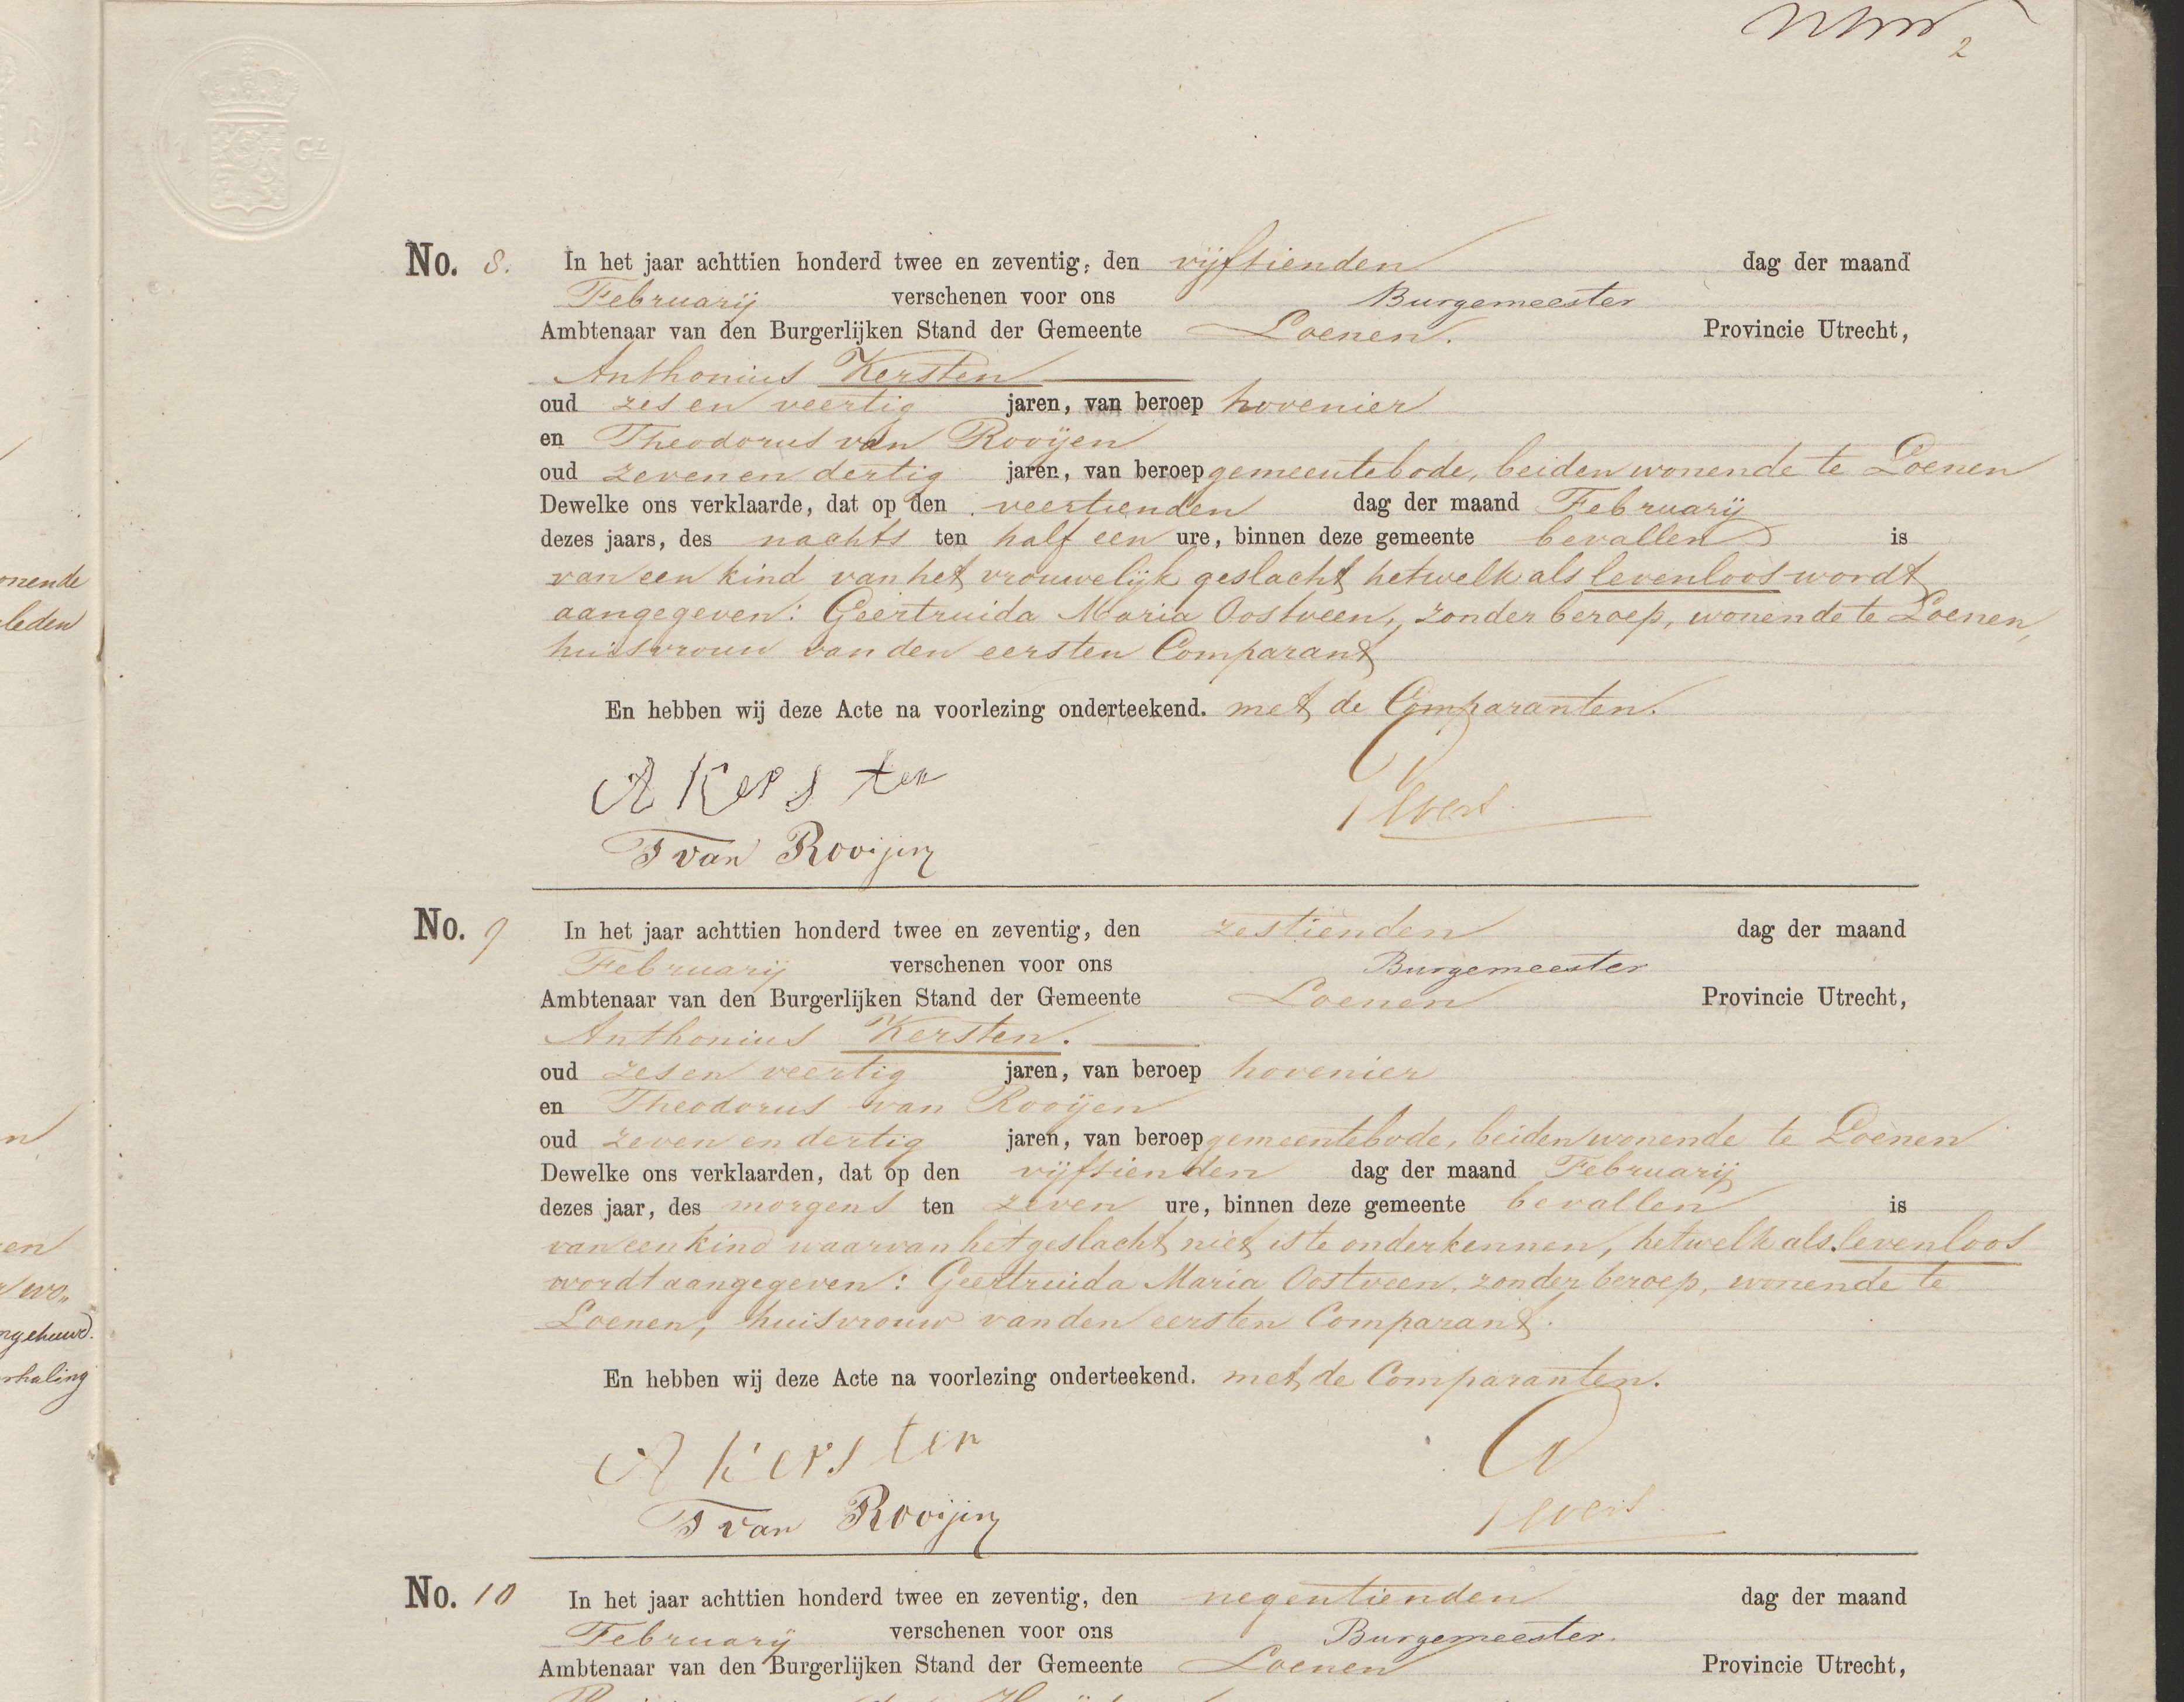 2
1 Gl
No. 8. In het jaar achttien honderd twee en zeventig, den vijftienden dag der maand
Februarij verschenen voor ons Burgemeester
Ambtenaar van den Burgerlijken Stand der Gemeente Loenen. Provincie Utrecht,
Anthonius Kersten
oud zes en veertig jaren, van beroep hovenier
en Theodorus van Rooijen
oud zeven en dertig jaren, van beroep gemeentebode, beiden wonende te Loenen
Dewelke ons verklaarde, dat op den veertienden dag der maand Februarij
dezes jaars, des nachts ten half een ure, binnen deze gemeente bevallen is
van een kind van het vrouwelijk geslacht hetwelk als levenloos wordt
aangegeven: Geertruida Maria Oostveen, zonder beroep, wonende te Loenen,
huisvrouw van den eersten Comparant
En hebben wij deze Acte na voorlezing onderteekend. met de Comparanten.
A Kersten
T van Rooijen
No. 9 In het jaar achttien honderd twee en zeventig, den zestienden dag der maand
Februarij verschenen voor ons Burgemeester
Ambtenaar van den Burgerlijken Stand der Gemeente Loenen Provincie Utrecht,
Anthonius Kersten.
oud zes en veertig jaren, van beroep hovenier
en Theodorus van Rooijen
oud zeven en dertig jaren, van beroep gemeentebode, beiden wonende te Loenen
Dewelke ons verklaarden, dat op den vijftienden dag der maand Februarij
dezes jaar, des morgens ten zeven ure, binnen deze gemeente bevallen is
van een kind waarvan het geslacht niet is te onderkennen, hetwelk als levenloos
wordt aangegeven: Geertruida Maria Oostveen, zonder beroep, wonende te
Loenen, huisvrouw van den eersten Comparant.
En hebben wij deze Acte na voorlezing onderteekend. met de Comparanten.
A Kersten
T van Rooijen
No. 10 In het jaar achttien honderd twee en zeventig, den negentienden dag der maand
Februarij verschenen voor ons Burgemeester.
Ambtenaar van den Burgerlijken Stand der Gemeente Loenen Provincie Utrecht,